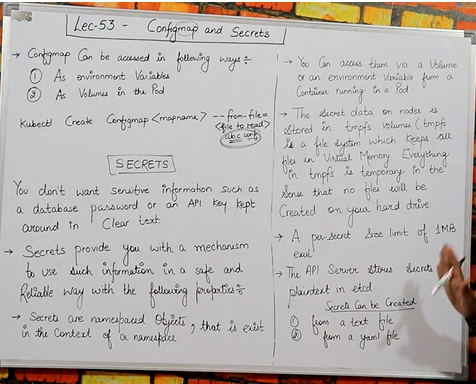 Lec-53 - Configmap and Secrets
→ Configmap Can be accessed in following ways÷
① As environment Variables
② As Volumes in the Pod
Kubectl Create Configmap <mapname> --from-file=
<file to read>
abc.conf
SECRETS
You don't want sensitive information such as
a database password or an API Key kept
around in Clear text
→ Secrets provide you with a mechanism
to use such information in a safe and
Reliable way with the following properties÷
→ Secrets are namespaced Objects, that is exist
in the Context of a namespace
→ You Can access them via a Volume
or an environment Variable from a
Container running in a Pod
→ The secret data on nodes is
stored in tmpfs volumes (tmpfs
is a file system which keeps all
files in Virtual Memory Everything
in tmpfs is temporary in the
Sense that no files will be
Created on your hard drive
→ A per-secret size limit of 1MB
exist
→ The API Server stores secrets
plaintext in etcd
Secrets Can be Created
① from a text file
② from a yaml file